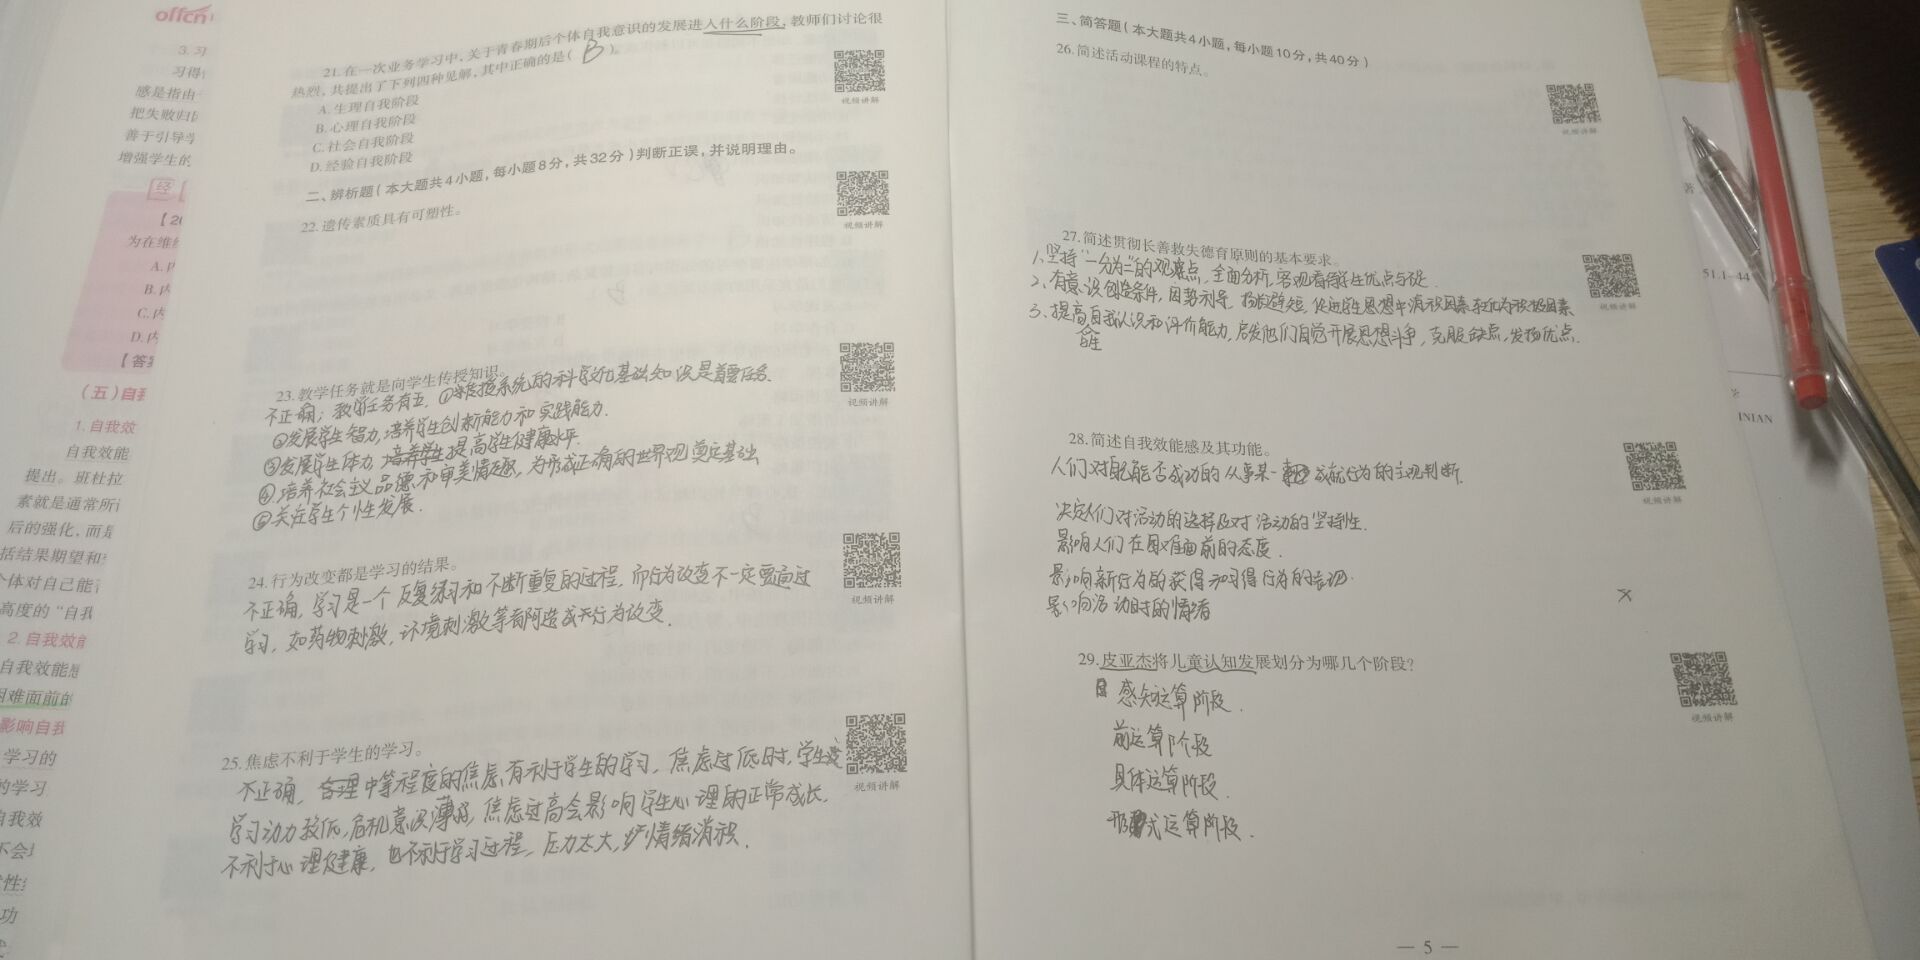 offcn
3. 习
习得
感是指由
把失败归
善于引导学
增强学生的
经
【20
为在维
A. 内
B. 内
C. 内
D. 内
【答案
(五)自我
1. 自我效
自我效能
提出。班杜拉
素就是通常所
后的强化,而是
括结果期望和
个体对自己能
高度的“自我
2. 自我效能
自我效能感
困难面前的
影响自我
学习的
的学习
自我效
不会
性
功
21. 在一次业务学习中,关于青春期后个体自我意识的发展进入什么阶段,教师们讨论很
热烈,共提出了下列四种见解,其中正确的是( B )。
A. 生理自我阶段
B. 心理自我阶段
C. 社会自我阶段
D. 经验自我阶段
视频讲解
二、辨析题(本大题共4小题,每小题8分,共32分)判断正误,并说明理由。
22. 遗传素质具有可塑性。
视频讲解
23. 教学任务就是向学生传授知识。
不正确;教学任务有五,①传授系统的科学文化基础知识是首要任务.
②发展学生智力,培养学生创新能力和实践能力.
③发展学生体力,提高学生健康水平.
④培养社会主义品德和审美情趣,为形成正确的世界观奠定基础
⑤关注学生个性发展.
视频讲解
24. 行为改变都是学习的结果。
不正确,学习是一个反复练习和不断重复的过程,而行为改变不一定要通过
学习,如药物刺激,环境刺激等都可造成行为改变.
视频讲解
25. 焦虑不利于学生的学习。
不正确,合理中等程度的焦虑,有利于学生的学习,焦虑过低时,学生
学习动力较低,危机意识薄弱,焦虑过高会影响学生心理的正常成长,
不利于心理健康,也不利于学习过程,压力太大,情绪消极.
视频讲解
三、简答题(本大题共4小题,每小题10分,共40分)
26. 简述活动课程的特点。
视频讲解
27. 简述贯彻长善救失德育原则的基本要求。
1、坚持“一分为二”的观点,全面分析,客观看待学生优点与不足.
2、有意识创造条件,因势利导,扬长避短,促进学生思想中消极因素转化为积极因素
3、提高自我认识和评价能力,启发他们自觉开展思想斗争,克服缺点,发扬优点.
学生
视频讲解
28. 简述自我效能感及其功能。
人们对自己能否成功的从事某一成就行为的主观判断.
决定人们对活动的选择及对活动的坚持性.
影响人们在困难面前的态度.
影响新行为的获得和习得行为的表现.
影响活动时的情绪
视频讲解
29. 皮亚杰将儿童认知发展划分为哪几个阶段?
感知运算阶段.
前运算阶段
具体运算阶段.
形式运算阶段.
视频讲解
— 5 —
51.1-44
INIAN